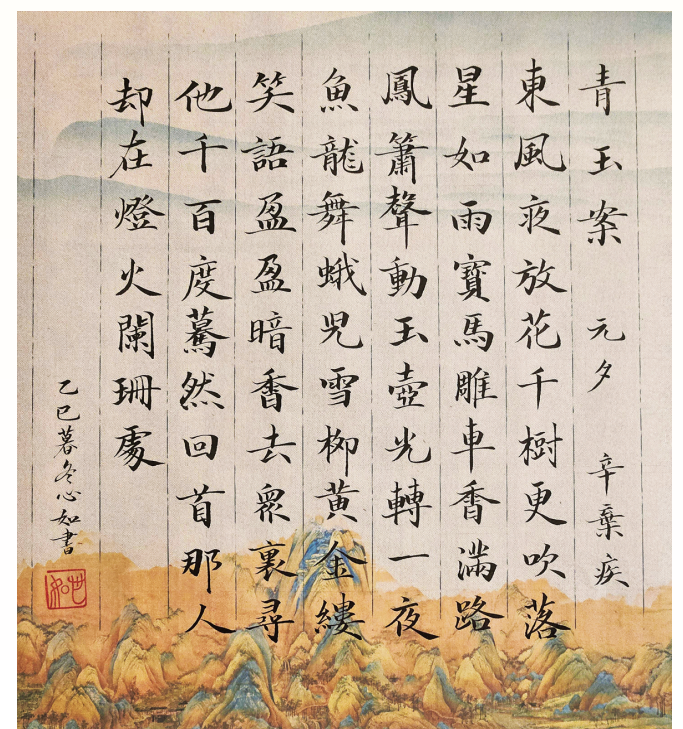 青玉案 元夕 辛棄疾
東風夜放花千樹更吹落
星如雨寶馬雕車香滿路
鳳簫聲動玉壺光轉一夜
魚龍舞蛾兒雪柳黃金縷
笑語盈盈暗香去衆裏尋
他千百度驀然回首那人
却在燈火闌珊處
乙巳暮冬心如書